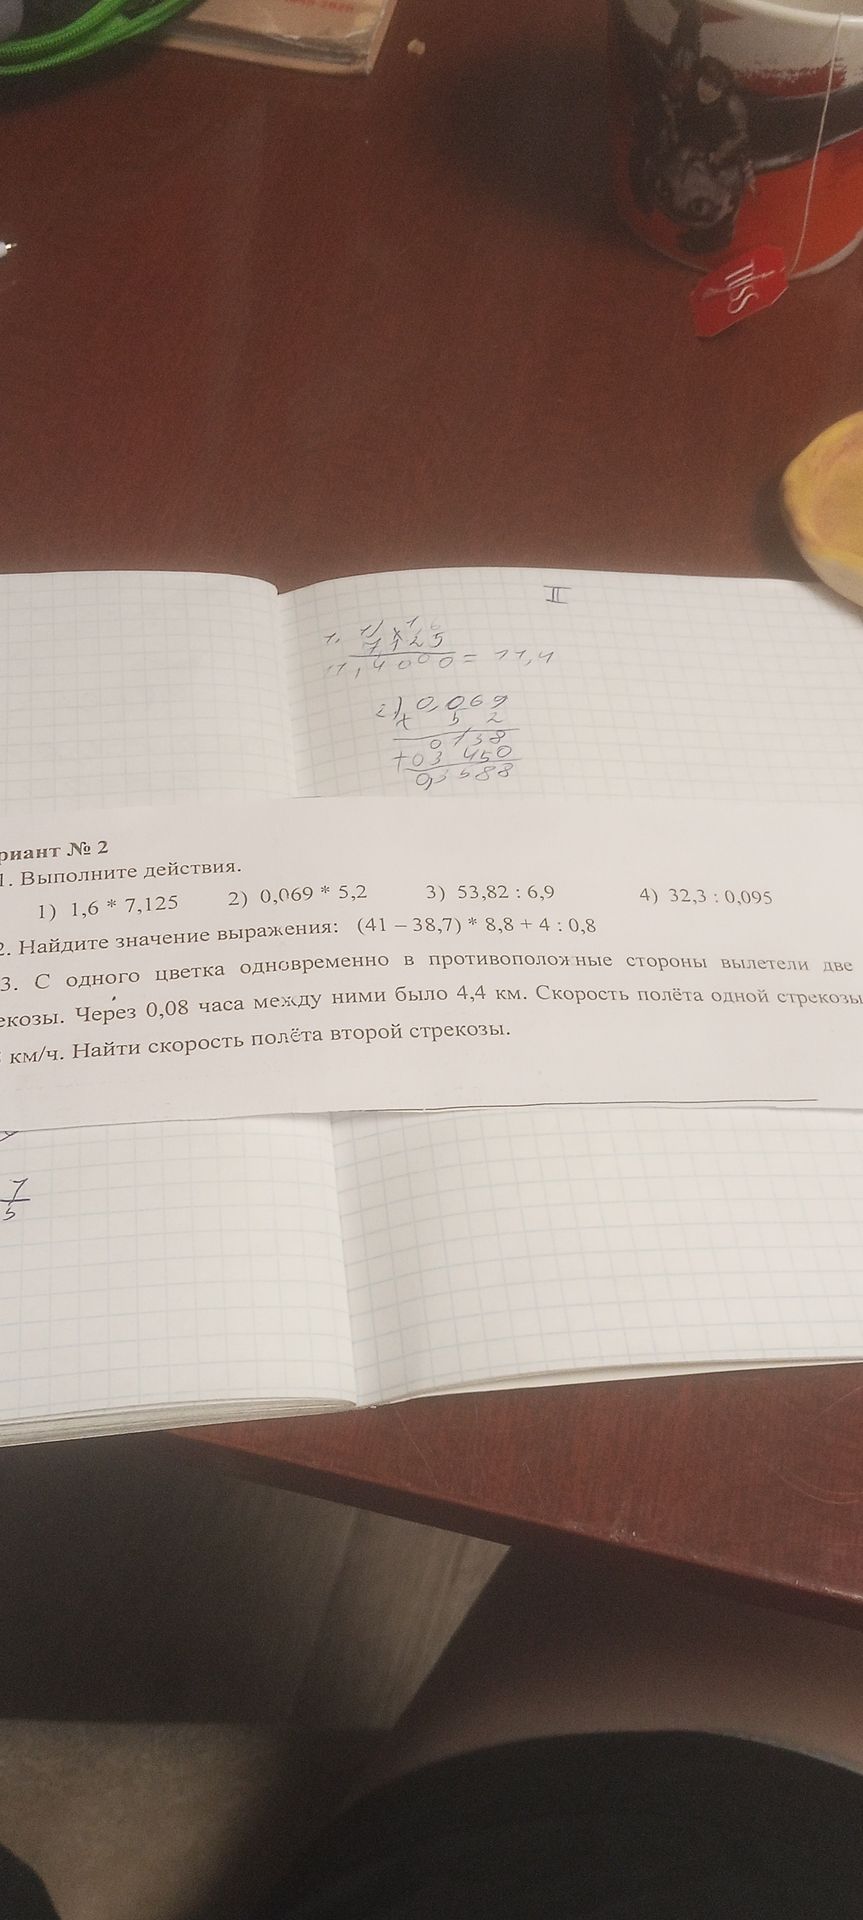 II
1. 1) × 1,6
7,125
11,4000 = 11,4
2) 0,069
× 5 2
0138
+ 03 450
0,3588
риант № 2
1. Выполните действия.
1) 1,6 * 7,125 2) 0,069 * 5,2 3) 53,82 : 6,9 4) 32,3 : 0,095
2. Найдите значение выражения: (41 – 38,7) * 8,8 + 4 : 0,8
3. С одного цветка одновременно в противоположные стороны вылетели две
екозы. Через 0,08 часа между ними было 4,4 км. Скорость полёта одной стрекозы
км/ч. Найти скорость полёта второй стрекозы.
7
5